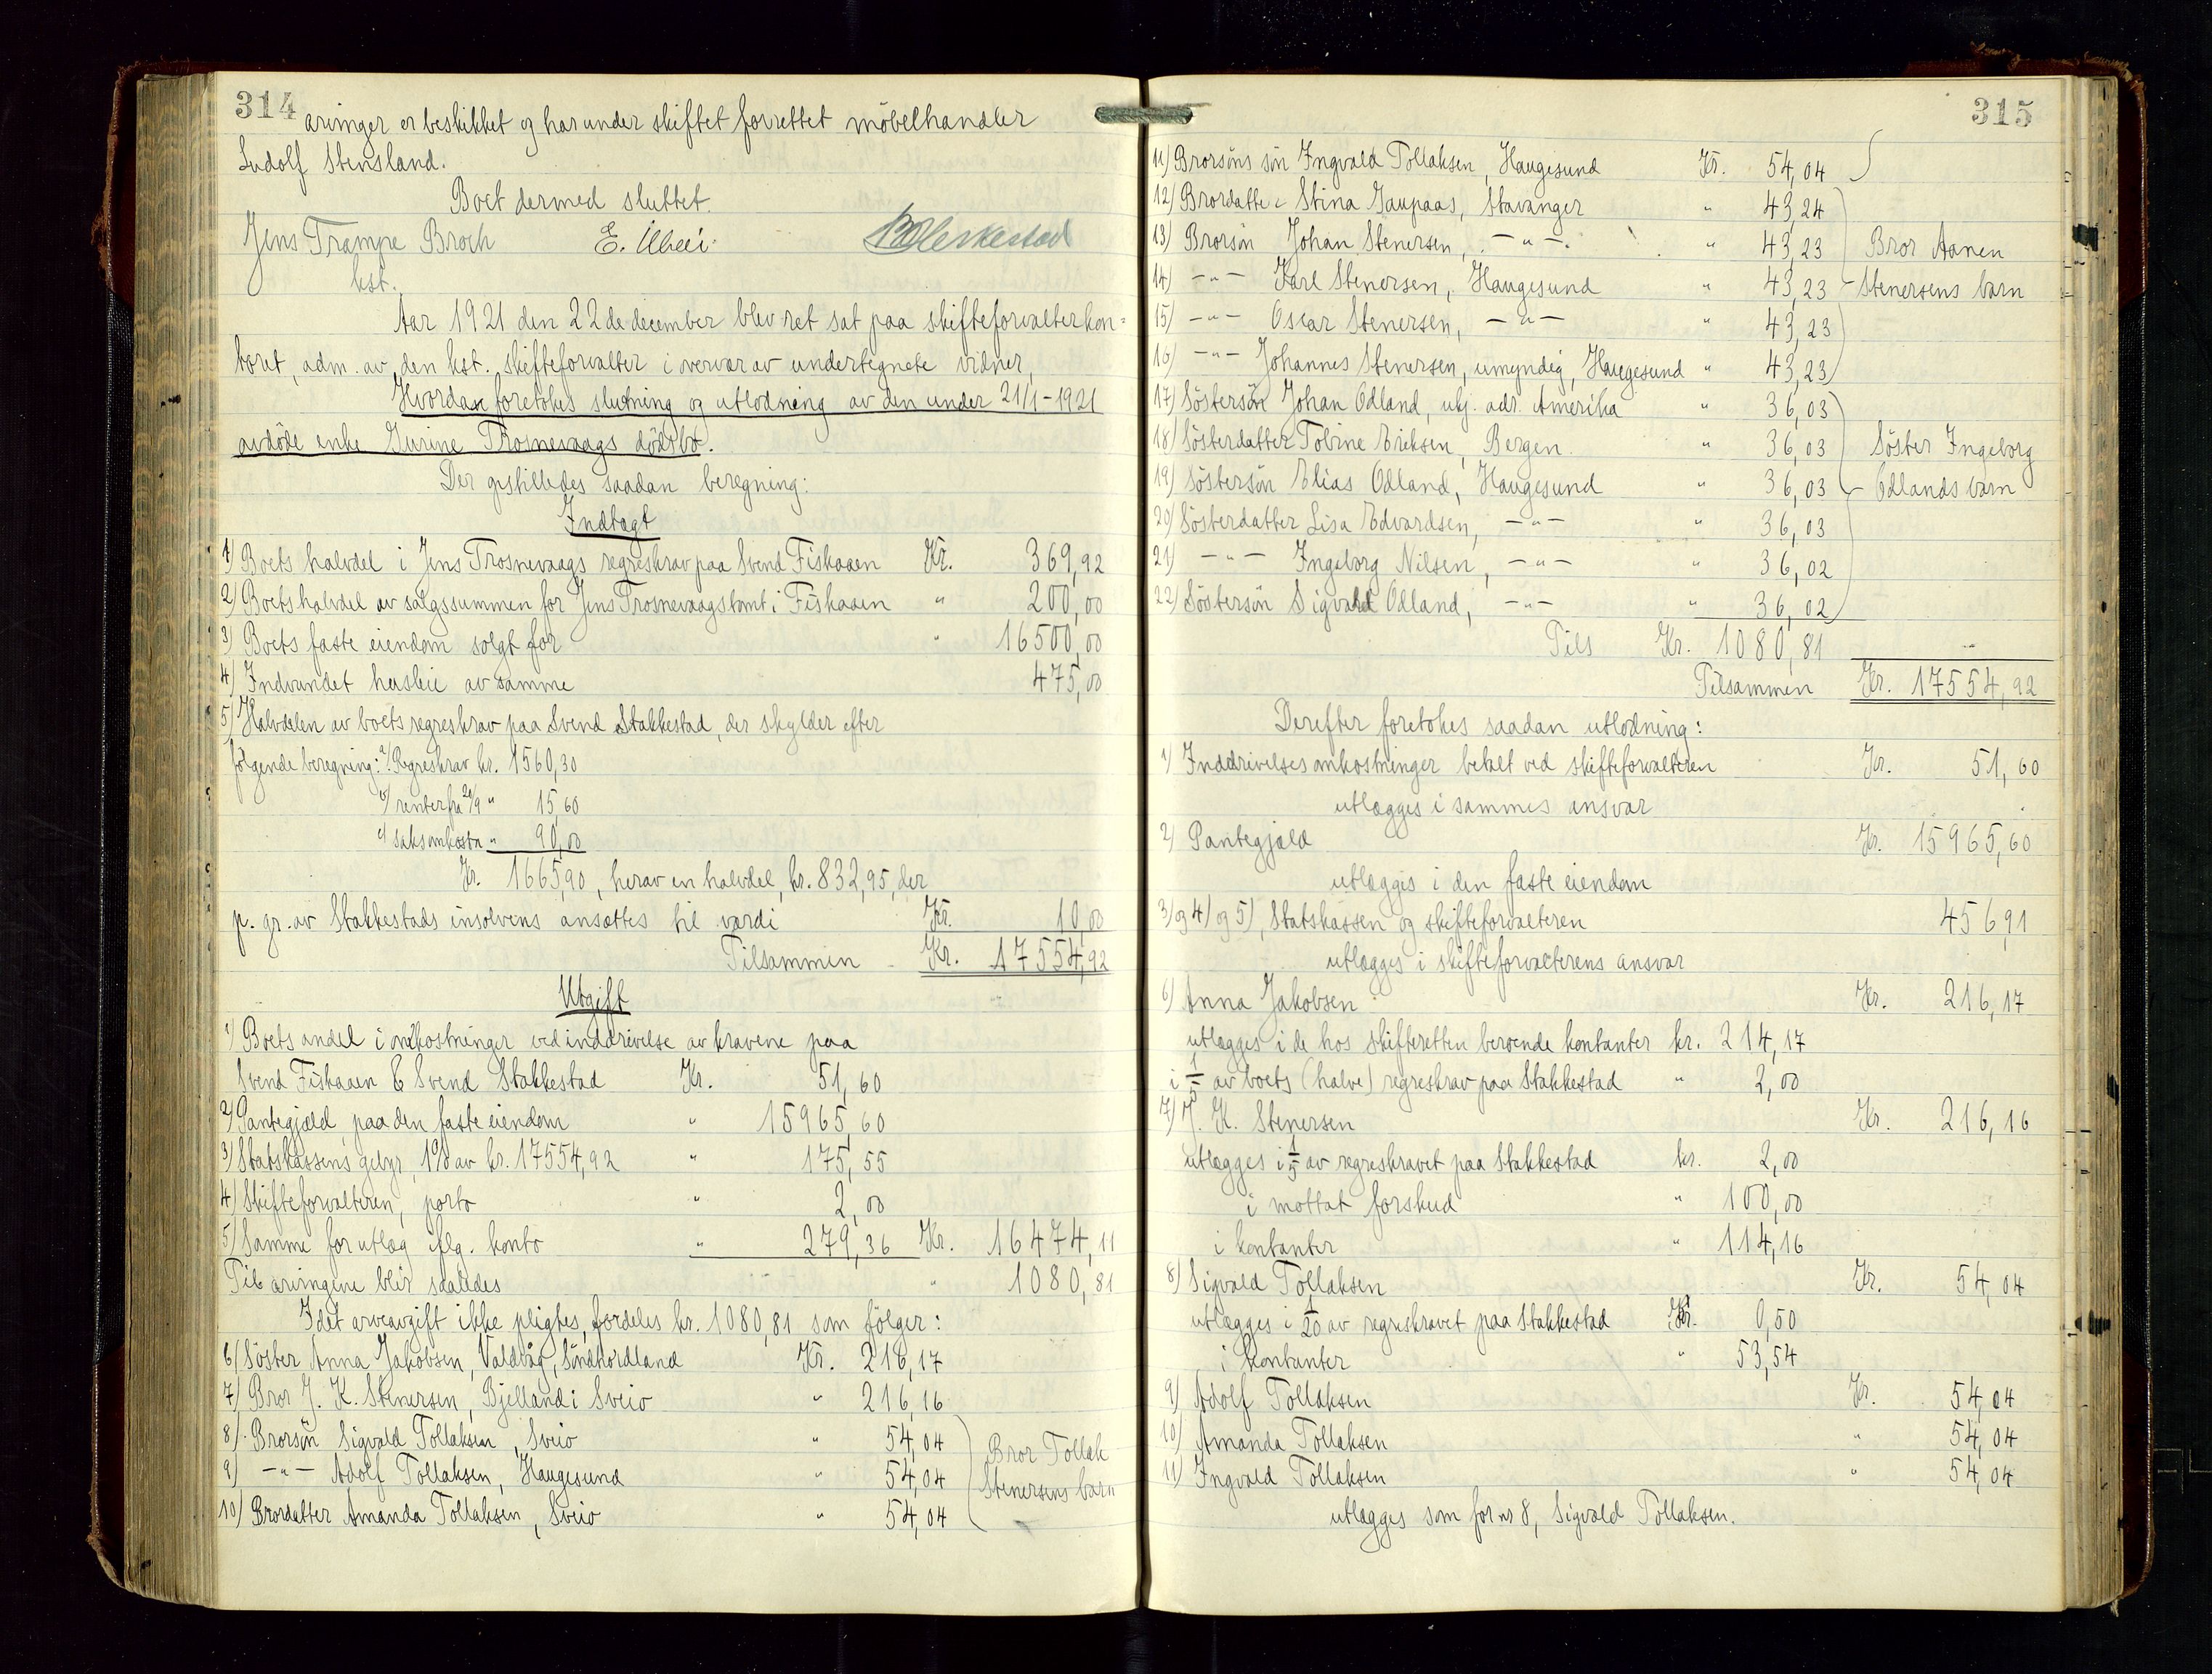 314
arvinger er beskikket og har under skiftet forrettet möbelhandler
Ludolf Stensland.
Boet dermed sluttet.
Jens Trampe Broch
kst.
Aar 1921 den 22de december blev ret sat paa skifteforvalterkon=
toret, adm. av den kst. skifteforvalter i overvær av undertegnete vidner
Hvordan foretokes slutning og utlodning av den under 21/1-1921
avdöde enke Gurine Trosnevaags dödsbo.
Der opstilledes saadan beregning:
Indtægt
1) Boets halvdel i Jens Trosnevaags regreskrav paa Svend Fiskaaen Kr. 369,92
2) Boets halvdel av salgssummen for Jens Trosnevaags tomt i Fiskaaen " 200,00
3) Boets faste eiendom solgt for " 16500,00
4) Indvundet husleie av samme 475,00
5) Halvdelen av boets regreskrav paa Svend Stakkestad, der skylder efter
följende beregning: a) Regreskrav kr. 1560,30
b) renter fra 20/9 " 15,60
c) saksomkostn " 90,00
Kr. 1665,90, herav en halvdel, kr. 832,95, der
p. gr. av Stakkestads insolvens ansættes til værdi Kr. 10,00
Tilsammen Kr. 17554,92
Utgift
1) Boets andel i omkostninger ved inddrivelse av kravene paa
Svend Fiskaaen & Svend Stakkestad Kr. 51,60
2) Pantegjæld paa den faste eiendom " 15965,60
3) Statskassens gebyr, 1% av kr. 17554,92 " 175,55
4) Skifteforvalteren, porto " 2,00
5) Samme for utlæg iflg. konto " 279,36 Kr. 16474,11
Til arvingene blir saaledes " 1080,81
Idet arveavgift ikke pligtes, fordeles kr. 1080,81 som fölger:
6) Söster Anna Jakobsen, Valdvåg, Söndhordland Kr. 216,17
7) Bror J. K. Stenersen, Bjelland i Sveio " 216,16
8) Brorsön Sigvald Tollaksen, Sveio " 54,04
9) -"- Adolf Tollaksen, Haugesund " 54,04
10) Brordatter Amanda Tollaksen, Sveio " 54,04
Bror Tollak
Stenersens barn
315
11) Brorsöns sön Ingvald Tollaksen, Haugesund Kr. 54,04
12) Brordatter Stina Gaupaas, Stavanger " 43,24
13) Brorsön Johan Stenersen, -"- " 43,23
14) -"- Karl Stenersen, Haugesund " 43,23
15) -"- Oscar Stenersen, -"- " 43,23
16) -"- Johannes Stenersen, umyndig, Haugesund " 43,23
Bror Aanen
Stenersens barn
17) Söstersön Johan Odland, ukj. adr. Amerika " 36,03
18) Sösterdatter Tobine Eriksen, Bergen. " 36,03
19) Söstersön Elias Odland, Haugesund " 36,03
20) Sösterdatter Lisa Edvardsen, -"- " 36,03
21) -"- Ingeborg Nilsen, -"- " 36,02
22) Söstersön Sigvald Odland, -"- " 36,02
Söster Ingeborg
Odlands barn
Tils Kr. 1080,81
Tilsammen Kr. 17554,92
Derefter foretokes saadan utlodning:
1) Inddrivelsesomkostninger betalt ved skifteforvalteren Kr. 51,60
utlægges i sammes ansvar
2) Pantegjæld Kr. 15965,60
utlægges i den faste eiendom
3) og 4) og 5), Statskassen og skifteforvalteren 456,91
utlægges i skifteforvalterens ansvar
6) Anna Jakobsen Kr. 216,17
utlægges i de hos skifteretten beroende kontanter kr. 214,17
i 1/5 av boets (halve) regreskrav paa Stakkestad " 2,00
7) J. K. Stenersen Kr. 216,16
utlægges i 1/5 av regreskravet paa Stakkestad kr. 2,00
i mottat forskud " 100,00
i kontanter " 114,16
8) Sigvald Tollaksen Kr. 54,04
utlægges i 1/20 av regreskravet paa Stakkestad Kr. 0,50
i kontanter " 53,54
9) Adolf Tollaksen Kr. 54,04
10) Amanda Tollaksen " 54,04
11) Ingvald Tollaksen " 54,04
utlægges som for nr 8, Sigvald Tollaksen.